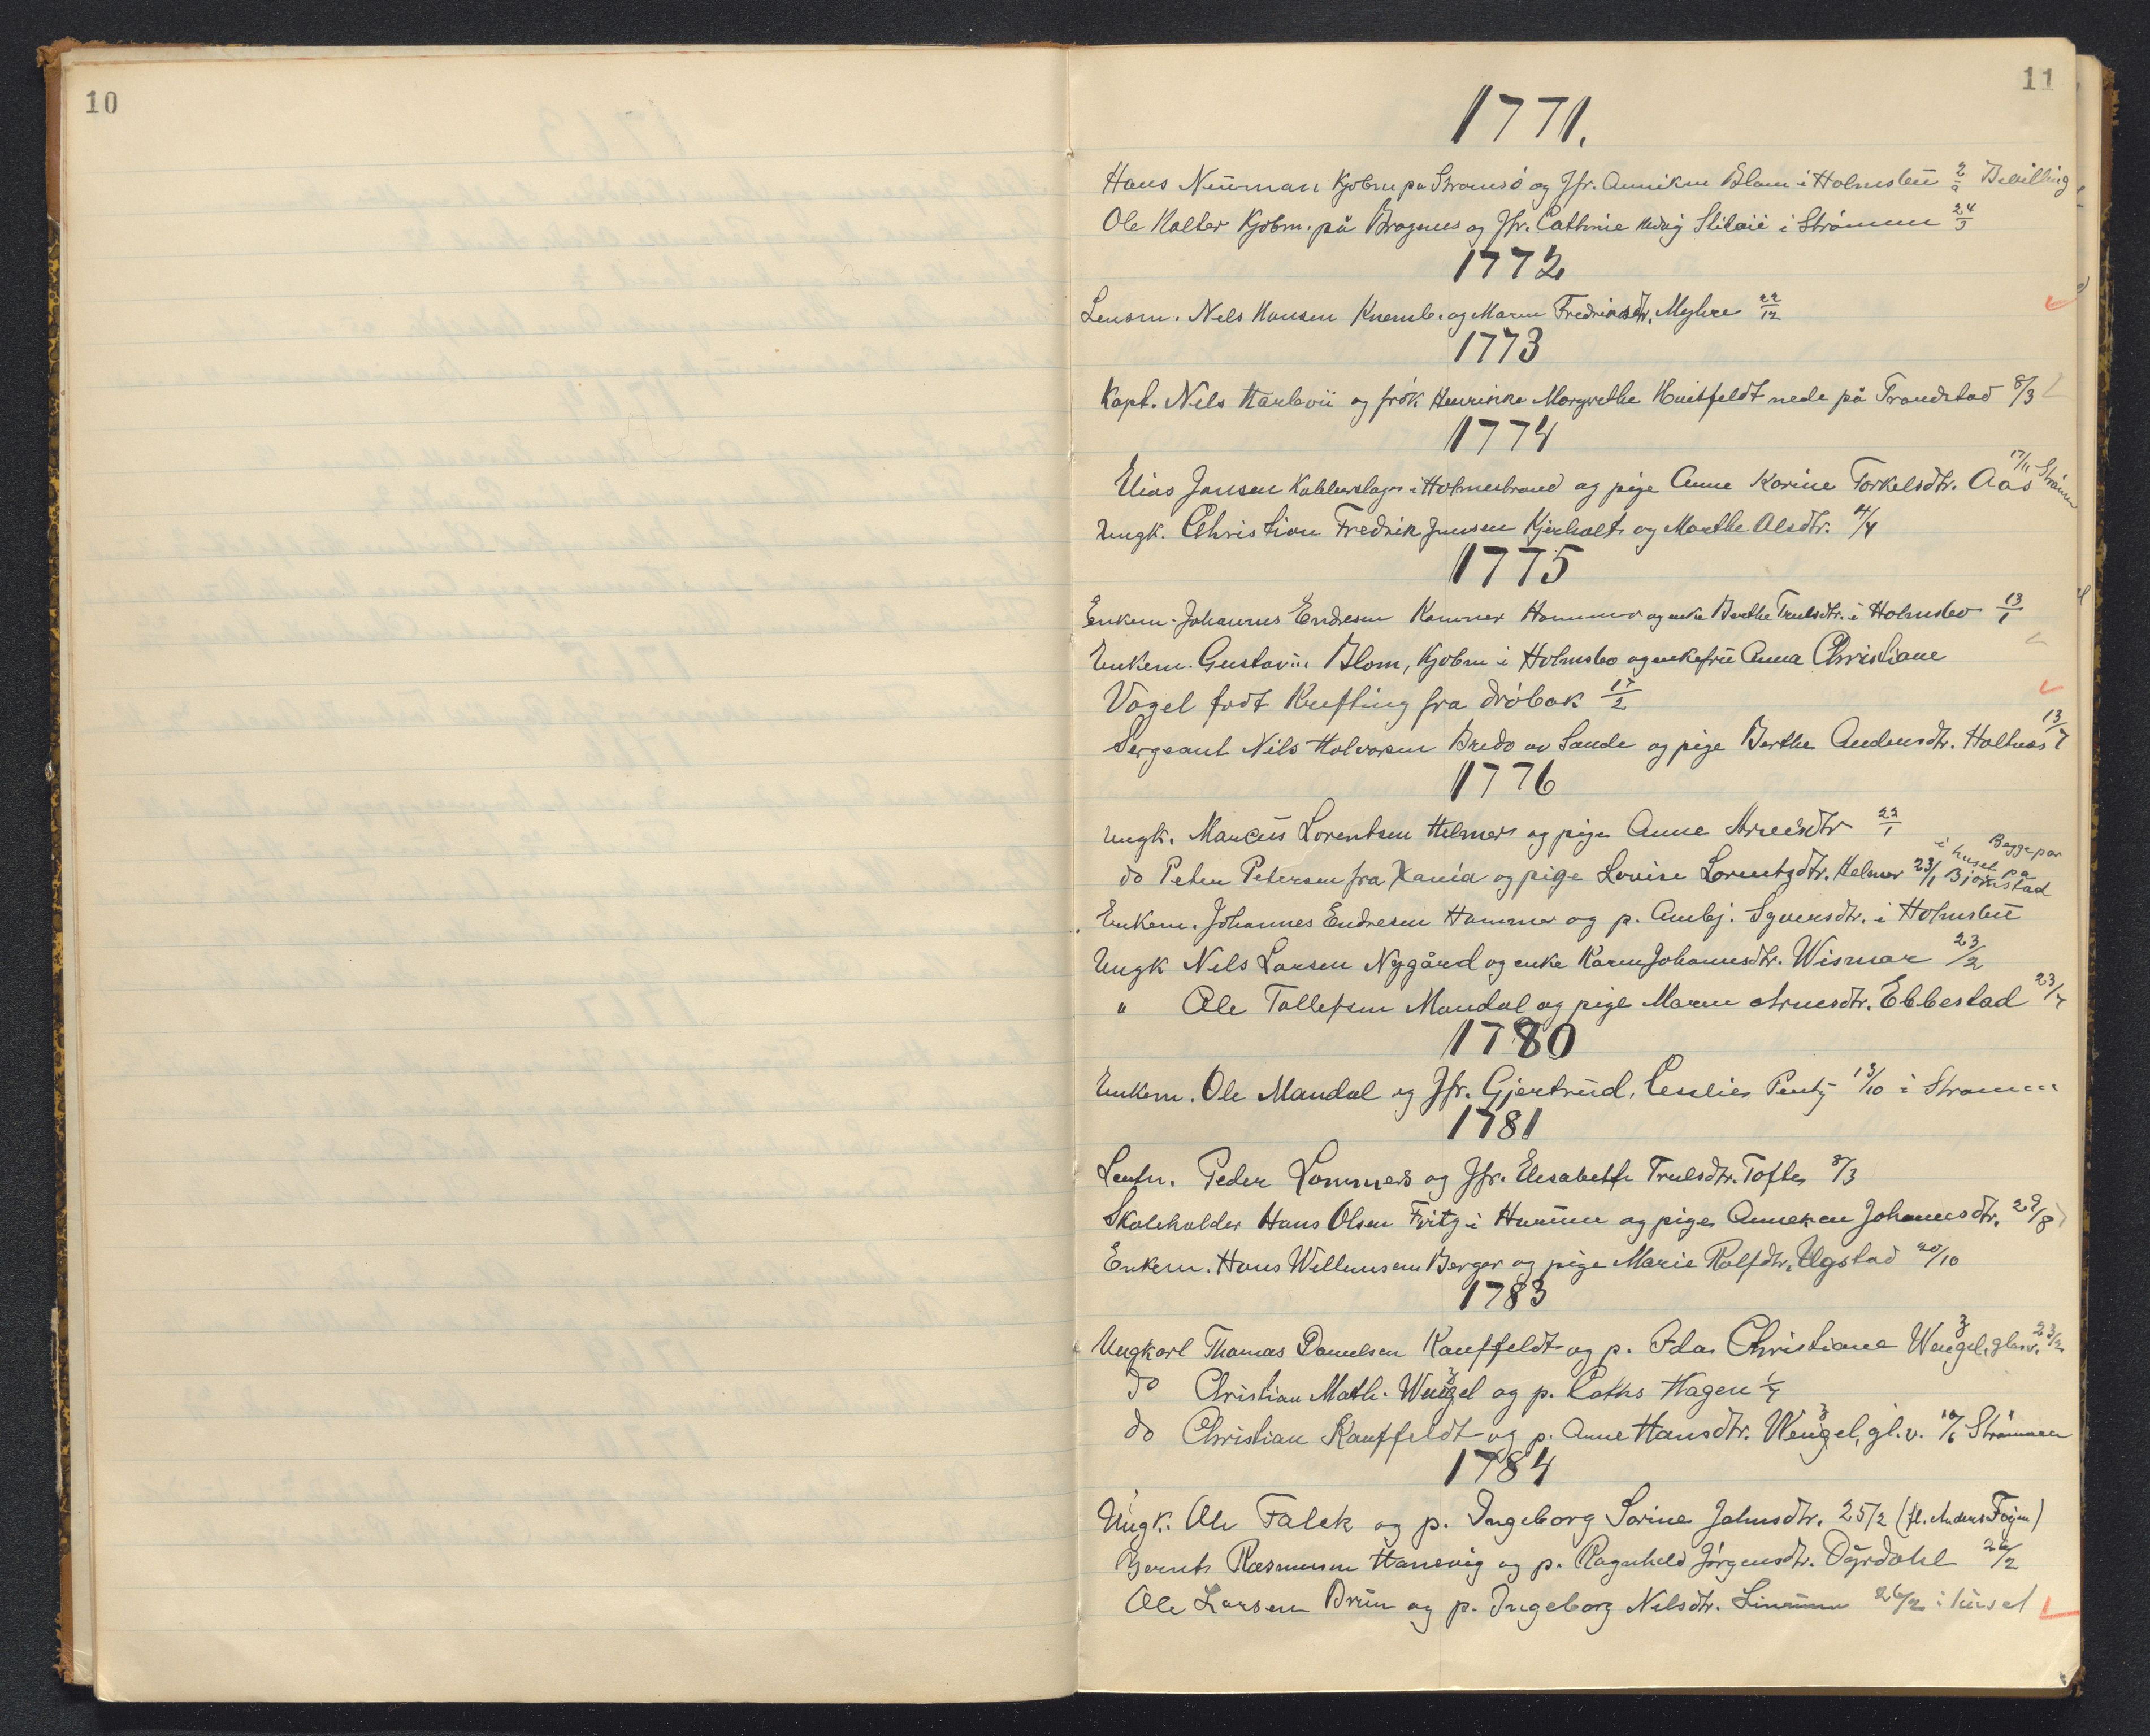 10
11
1771.
Hans Neuman Kjøbm på Strømsø og Jfr. Anniken Blom i Holmsbu 2/9 Bevilling
Ole Kolter Kjøbm. på Bragnes og Jfr. Cathrine Hedvig i Strømmen 24/3
1772
Lensm. Nels Hansen Knemb. og Maren Fredriksdtr. Myhre 22/12
1773
Kapt. Nels og frøk Henrikke Margrethe Huitfeldt nede på Trondstad 8/3
1774
Elias Jansen Kobberslager i Holmestrand og pige Anne Karine Torkelsdtr. Aas 17/11 Strømm
Ungk. Christian Fredrik Jensen Kjerholt og Marthe Olsdtr. 4/4
1775
Enkem. Johannes Endresen Hammer og enke Berthe Trulsdtr. i Holmsbo 13/1
Enkem. Gustav Blom, Kjøbm i Holmsbo og enkefru Anna Christiane
Vogel født Krefting fra Drøbak 17/2
Sergeant Nils Holvorsen Bredo av Sande og pige Berthe Andersdtr. Holtnes 13/7
1776
Ungk. Marcus Lorentsen Helmers og pige Anne Arnesdtr 22/1
do Peter Petersen fra Xania og pige Lovise Lorentzdtr. Helmer 23/1 Begge par i huset på Bjørnstad
Enkem. Johannes Endresen Hammer og p. Ambj. Syversdtr. i Holmsbu
Ungk Nels Larsen Nygård og enke Karen Johannesdtr. Wismar 23/2
" Ole Tollefsen Mandal og pige Maren Arnesdtr. Ebbestad 23/7
1780
Enkem. Ole Mandal og Jfr. Gjertrud Cecilie Pentz 13/10 i Strømm
1781
Leutn. Peder Lommers og Jfr. Elisabeth Trulsdtr. Tofte 8/3
Skoleholder Hans Olsen Fritz i Hurum og pige Anneken Johannesdtr. 29/8
Enkem. Hans Willumsen Berger og pige Marie Rolfdtr. Ulgstad 20/10
1783
Ungkarl Thomas Danielsen Kauffeldt og p. Ida Christiane Wengel, glasv. 23/2
do Christian Math. Wengel og p. Caths Hagen 1/7
do Christian Kauffeldt og p. Anne Hansdtr. Wengel, gl.v. 10/6 Strømmen
1784
Ungk. Ole Falck og p. Ingeborg Sorine Johnsdtr. 25/2 (fl. Anders Føyn)
Bernt Rasmusen Hanevig og p. Ragnhild Jørgensdtr. Dyrdahl 26/2
Ole Larsen Brun og p. Ingeborg Nilsdtr. 26/2 i huset